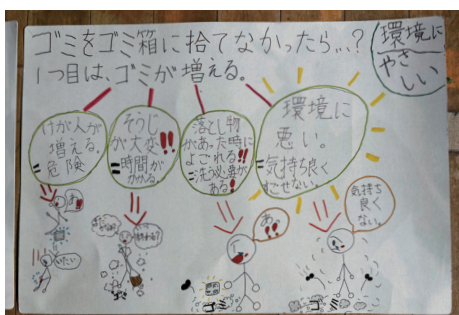 ゴミをゴミ箱に捨てなかったら...?
1つ目は、ゴミが増える。
環境に
やさ
しい
けが人が
増える。
=危険
そうじ
が大変!!
=時間が
かかる。
落とし物
があった時に
よごれる!!
=洗う必要が
ある!
環境に
悪い。
=気持ち良く
すごせない。
あ!!
いたい
終わる?
あっ!!
気持ち
良く
ない。
ゴミ
ゴミ